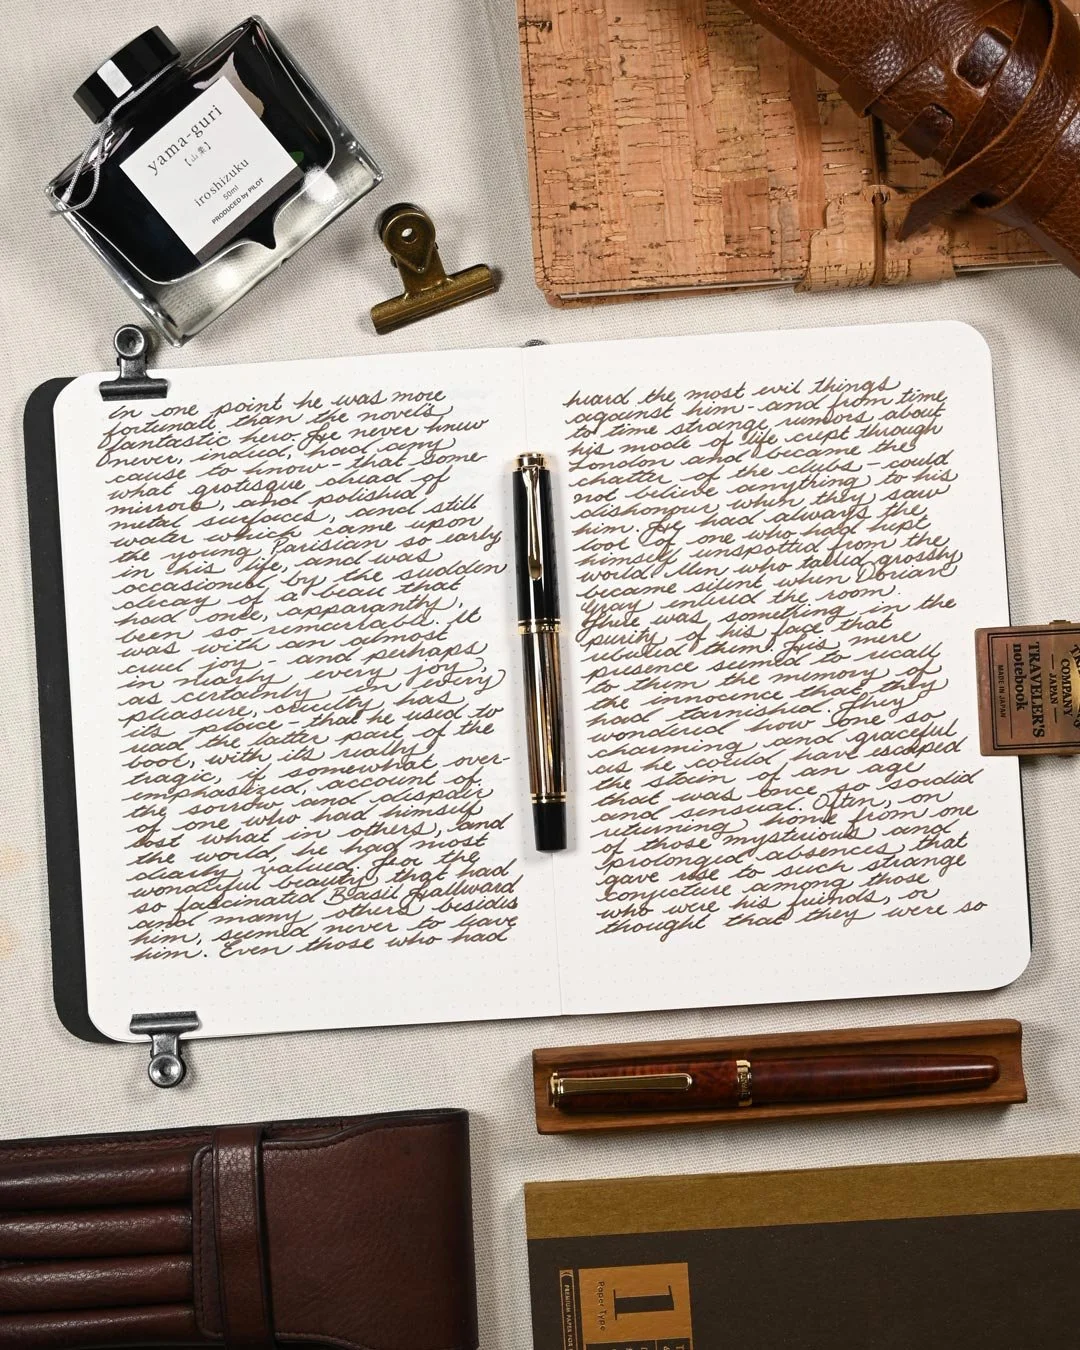 yama-guri
【山栗】
iroshizuku
50ml
PRODUCED by PILOT
In one point he was more
fortunate than the novel's
fantastic hero. He never knew
never, indeed, had any
cause to know - that some-
what grotesque dread of
mirrors, and polished
metal surfaces, and still
water which came upon
the young Parisian so early
in his life, and was
occasioned by the sudden
decay of a beau that
had once, apparantly,
been so remarkable. It
was with an almost
cruel joy - and perhaps
in nearly every joy,
as certainly in every
pleasure, cruelty has
its place - that he used to
read the latter part of the
book, with its really
tragic, if somewhat over-
emphasized, account of
the sorrow and dispair
of one who had himself
lost what in others, and
the world, he had most
dearly valued. For the
wonderful beauty that had
so fascinated Basil Hallward
and many others besides
him, seemed never to leave
him. Even those who had
heard the most evil things
against him - and from time
to time strange rumors about
his mode of life crept through
London and became the
chatter of the clubs - could
not believe anything to his
dishonour when they saw
him. He had always the
look of one who had kept
himself unspotted from the
world. Men who talked grossly
became silent when Dorian
Gray entered the room.
There was something in the
purity of his face that
rebuked them. His mere
presence seemed to recall
to them the memory of
the innocence that they
had tarnished. They
wondered how one so
charming and graceful
as he could have escaped
the stain of an age
that was once so sordid
and sensual. Often, on
returning home from one
of those mysterious and
prolonged absences that
gave rise to such strange
conjecture among those
who were his friends, or
thought that they were so
COMPANY
— JAPAN —
TRAVELER'S
notebook
MADE IN JAPAN
1
Paper Type
PREMIUM PAPER FOR